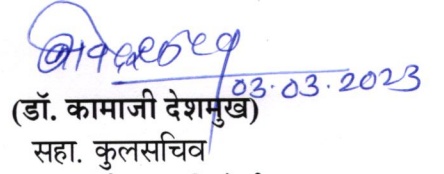 03.03.2023
(डॉ. कामाजी देशमुख)
सहा. कुलसचिव